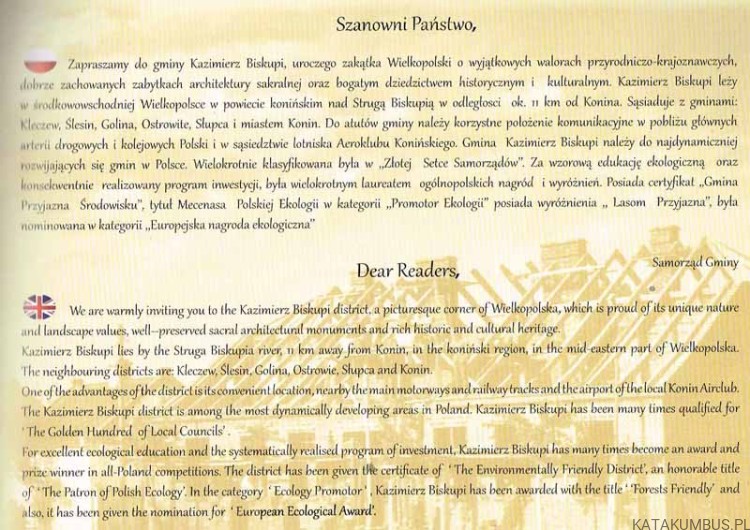 Szanowni Państwo,
Zapraszamy do gminy Kazimierz Biskupi, uroczego zakątka Wielkopolski o wyjątkowych walorach przyrodniczo-krajoznawczych,
dobrze zachowanych zabytkach architektury sakralnej oraz bogatym dziedzictwem historycznym i kulturalnym. Kazimierz Biskupi leży
w środkowowschodniej Wielkopolsce w powiecie konińskim nad Strugą Biskupią w odległosci ok. 11 km od Konina. Sąsiaduje z gminami:
Kleczew, Ślesin, Golina, Ostrowite, Słupca i miastem Konin. Do atutów gminy należy korzystne położenie komunikacyjne w pobliżu głównych
arterii drogowych i kolejowych Polski i w sąsiedztwie lotniska Aeroklubu Konińskiego. Gmina Kazimierz Biskupi należy do najdynamiczniej
rozwijających się gmin w Polsce. Wielokrotnie klasyfikowana była w „Złotej Setce Samorządów”. Za wzorową edukację ekologiczną oraz
konsekwentnie realizowany program inwestycji, była wielokrotnym laureatem ogólnopolskich nagród i wyróżnień. Posiada certyfikat „Gmina
Przyjazna Środowisku”, tytuł Mecenasa Polskiej Ekologii w kategorii „Promotor Ekologii” posiada wyróżnienia „ Lasom Przyjazna”, była
nominowana w kategorii „Europejska nagroda ekologiczna”
Samorząd Gminy
Dear Readers,
We are warmly inviting you to the Kazimierz Biskupi district, a picturesque corner of Wielkopolska, which is proud of its unique nature
and landscape values, well–preserved sacral architectural monuments and rich historic and cultural heritage.
Kazimierz Biskupi lies by the Struga Biskupia river, 11 km away from Konin, in the koniński region, in the mid-eastern part of Wielkopolska.
The neighbouring districts are: Kleczew, Ślesin, Golina, Ostrowite, Słupca and Konin.
One of the advantages of the district is its convenient location, nearby the main motorways and railway tracks and the airport of the local Konin Airclub.
The Kazimierz Biskupi district is among the most dynamically developing areas in Poland. Kazimierz Biskupi has been many times qualified for
‘The Golden Hundred of Local Councils’.
For excellent ecological education and the systematically realised program of investment, Kazimierz Biskupi has many times become an award and
prize winner in all-Poland competitions. The district has been given the certificate of ‘The Environmentally Friendly District’, an honorable title
of ‘The Patron of Polish Ecology’. In the category ‘Ecology Promotor’, Kazimierz Biskupi has been awarded with the title ‘‘Forests Friendly’ and
also, it has been given the nomination for ‘European Ecological Award’.
KATAKUMBUS.PL